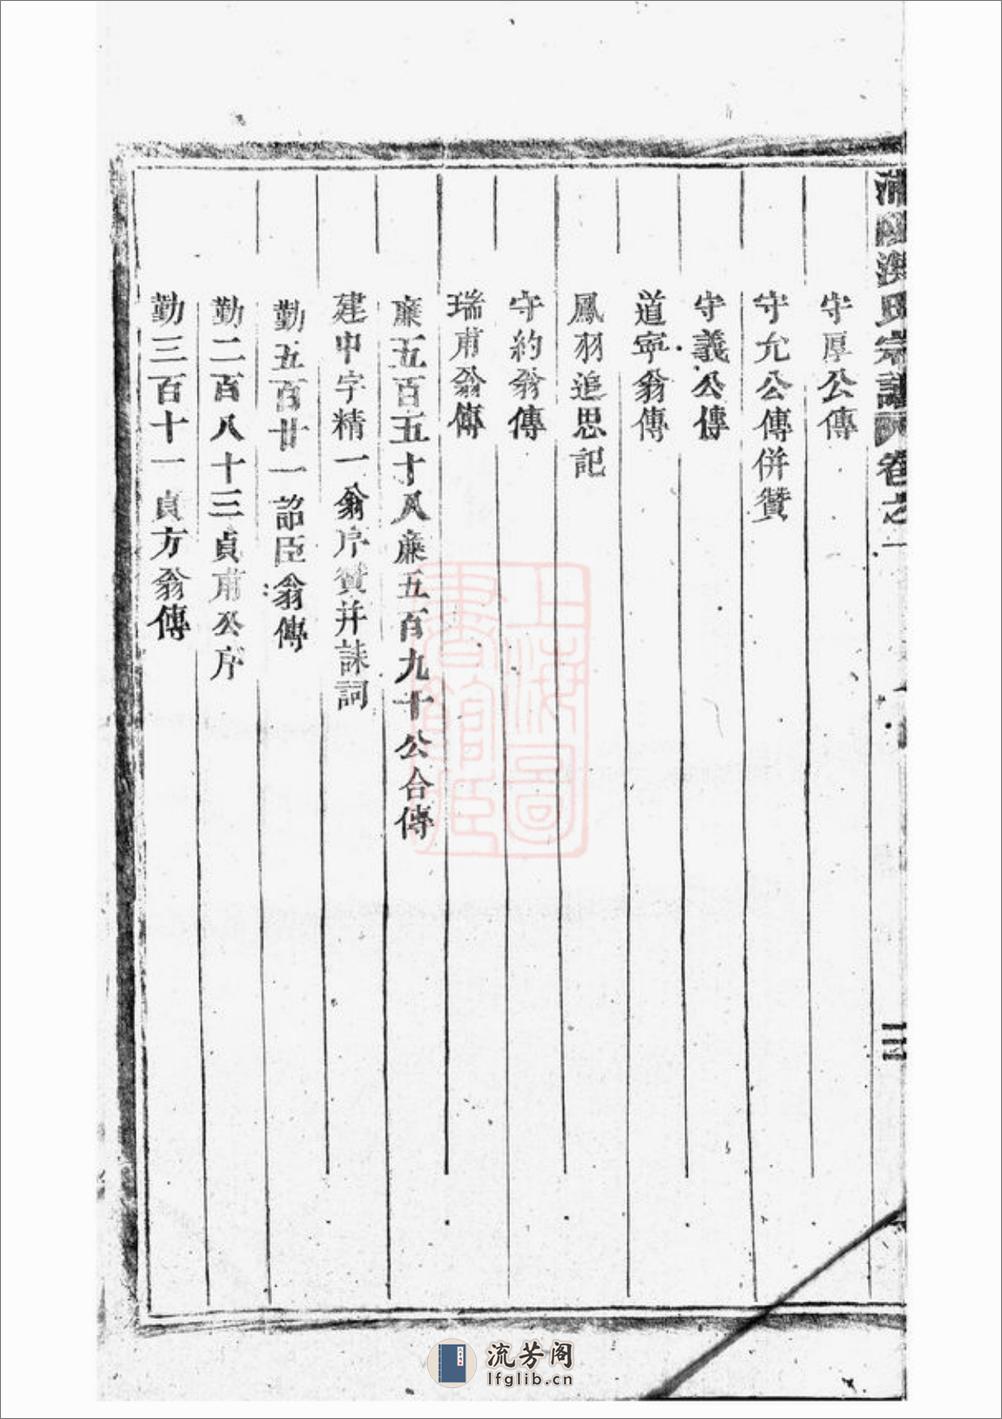 洪氏宗譜 卷之一
三
守厚公傳
守允公傳併贊
守義公傳
道寧翁傳
鳳羽追思記
守約翁傳
瑞甫翁傳
廉五百五十八廉五百九十公合傳
建中字精一翁序贊并誄詞
勤五百廿一詔臣翁傳
勤二百八十三貞甫公序
勤三百十一貞方翁傳
上海圖書館藏
流芳阁
lfglib.cn